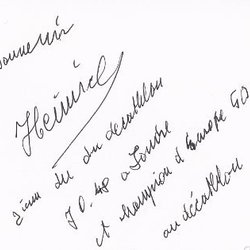 Souvenir
Heinrich
2ième du du décathlon
J O. 48 a Londre
et champion d'Europe 50
au décathlon